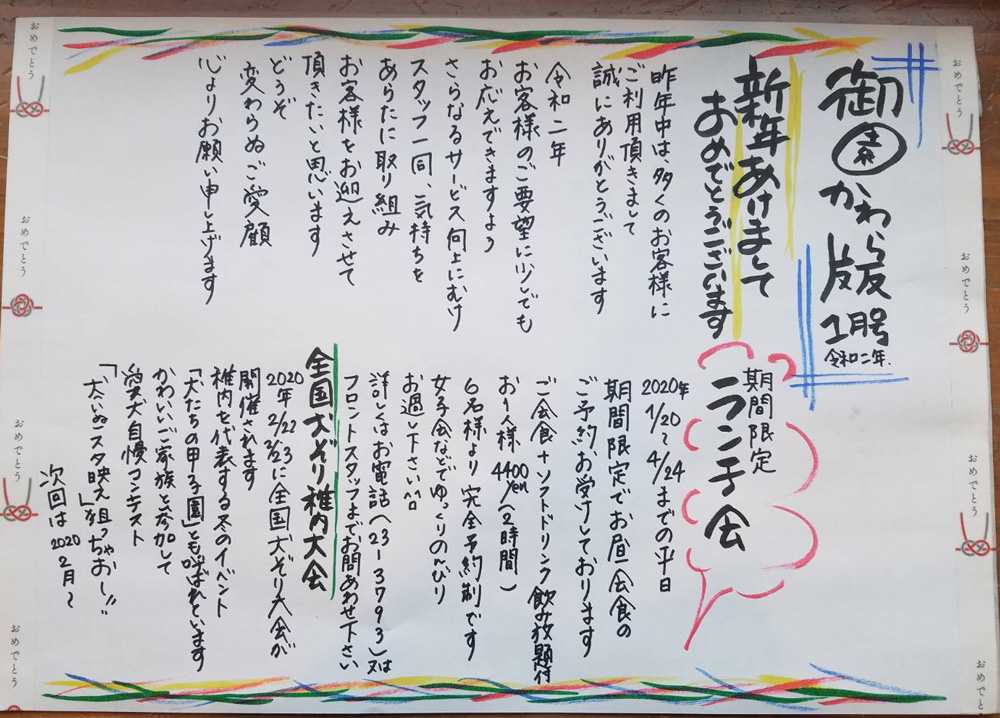 御園かわら版
1月号
令和二年.
新年あけまして
おめでとうございます
昨年中は、多くのお客様に
ご利用頂きまして
誠にありがとうございます
令和二年
お客様のご要望に少しでも
お応えできますよう
さらなるサービス向上にむけ
スタッフ一同、気持ちを
あらたに取り組み
お客様をお迎えさせて
頂きたいと思います
どうぞ
変わらぬご愛顧
心よりお願い申し上げます
期間限定
ランチ会
2020年
1/20〜4/24までの平日
期間限定でお昼会食の
ご予約、お受けしております
ご会食+ソフトドリンク飲み放題付
お1人様 4400yen(2時間)
6名様より完全予約制です
女子会などでゆっくりのんびり
お過し下さい^^
詳しくはお電話(23-3793)又は
フロントスタッフまでお問あわせ下さい
全国犬ぞり稚内大会
2020年2/22 2/23に全国犬ぞり大会が
開催されます
稚内を代表する冬のイベント
「犬たちの甲子園」とも呼ばれています
かわいいご家族と参加して
愛犬自慢コンテスト
「犬いぬスタ映え」狙っちゃおー!!
次回は2020 2月〜
おめでとう
おめでとう
おめでとう
おめでとう
おめでとう
おめでとう
おめでとう
おめでとう